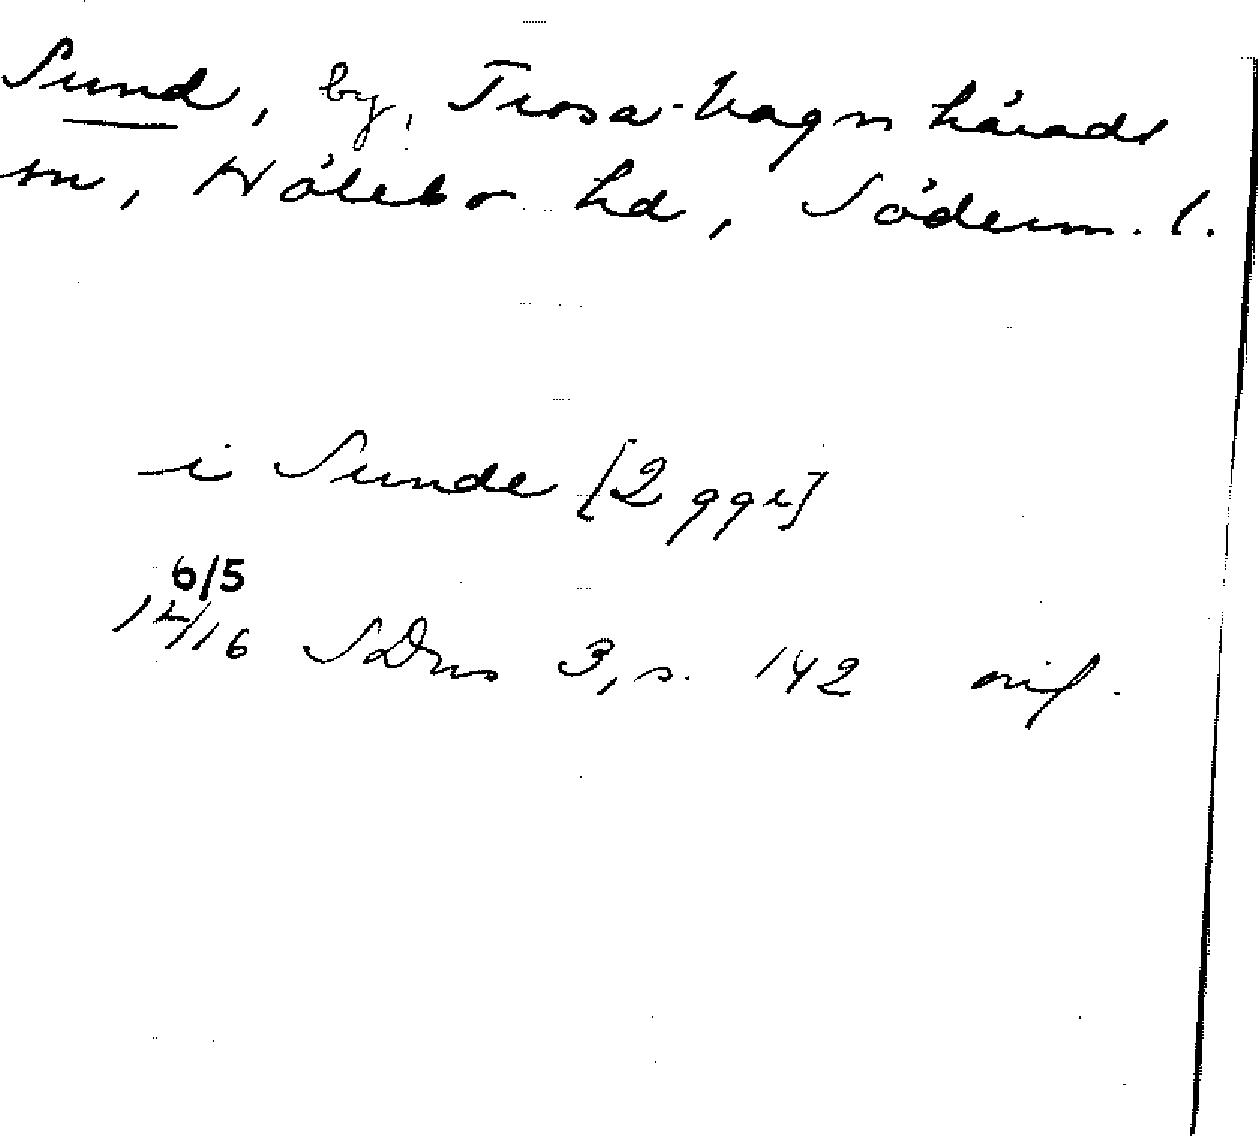 Sund, by, Trosa-Vagnhärads
sn, Hölebo hd, Söderm. l.
i Sunde [2 ggr]
6/5
1416 SDns 3, s. 142 orig.